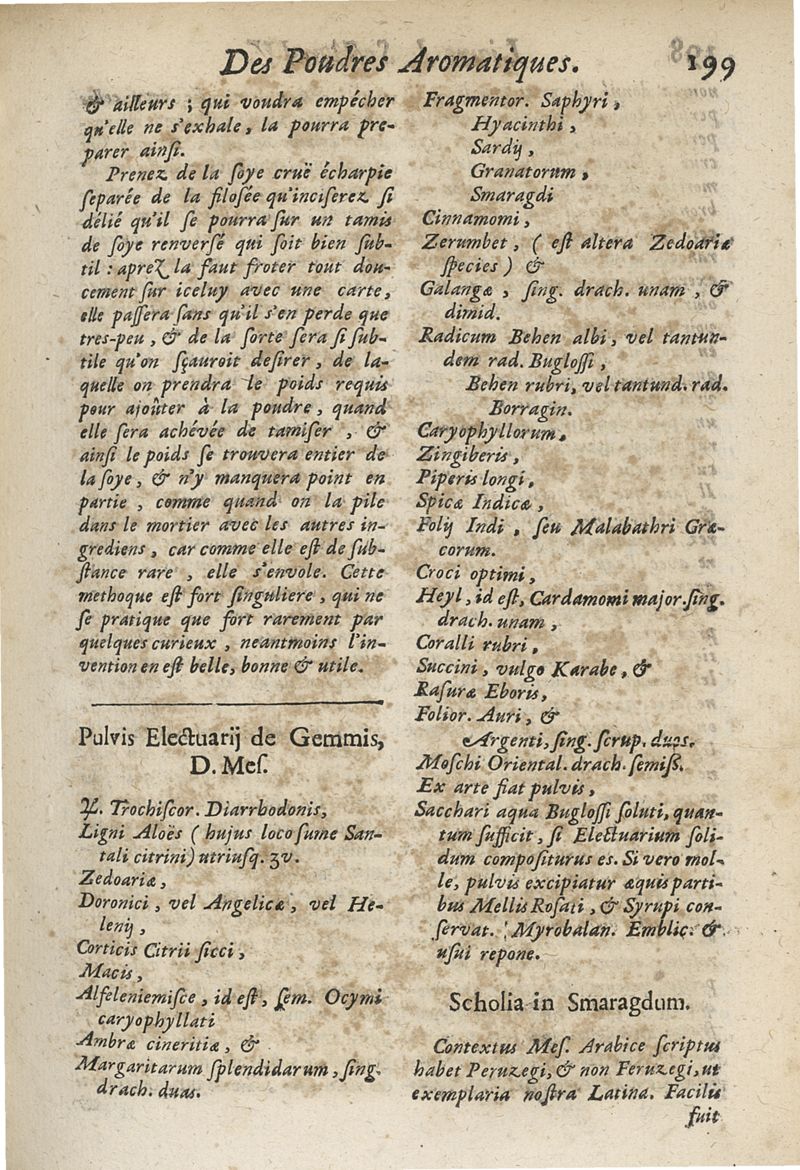 Des Poudres Aromatiques. 199
& ailleurs ; qui voudra empécher
qu'elle ne s'exhale, la pourra pre-
parer ainſi.
Prenez de la ſoye cruë écharpie
ſeparée de la filoſée qu'inciſerez ſi
délié qu'il ſe pourra ſur un tamis
de ſoye renverſé qui ſoit bien ſub-
til : aprez la faut froter tout dou-
cement ſur iceluy avec une carte,
elle paſſera ſans qu'il s'en perde que
tres-peu, & de la ſorte ſera ſi ſub-
tile qu'on ſçauroit deſirer, de la-
quelle on prendra le poids requis
pour ajoûter à la poudre, quand
elle ſera achévée de tamiſer, &
ainſi le poids ſe trouvera entier de
la ſoye, & n'y manquera point en
partie, comme quand on la pile
dans le mortier avec les autres in-
grediens, car comme elle eſt de ſub-
ſtance rare, elle s'envole. Cette
methoque eſt fort ſinguliere, qui ne
ſe pratique que fort rarement par
quelques curieux, neantmoins l'in-
vention en eſt belle, bonne & utile.
Pulvis Electuarij de Gemmis,
D. Meſ.
℞. Trochiſcor. Diarrhodonis,
Ligni Aloës ( hujus loco ſume San-
tali citrini) utriuſq. ʒv.
Zedoariæ,
Doronici, vel Angelicæ, vel He-
lenij,
Corticis Citrii ſicci,
Macis,
Alfeleniemiſce, id eſt, ſem. Ocymi
caryophyllati
Ambræ cineritiæ, &
Margaritarum ſplendidarum, ſing.
drach. duas.
Fragmentor. Saphyri,
Hyacinthi,
Sardij,
Granatorum,
Smaragdi
Cinnamomi,
Zerumbet, ( eſt altera Zedoariæ
ſpecies ) &
Galangæ, ſing. drach. unam, &
dimid.
Radicum Behen albi, vel tantun-
dem rad. Bugloſſi,
Behen rubri, vel tantund. rad.
Borragin.
Caryophyllorum,
Zingiberis,
Piperis longi,
Spicæ Indicæ,
Folij Indi, ſeu Malabathri Græ-
corum.
Croci optimi,
Heyl, id eſt, Cardamomi major. ſing.
drach. unam,
Coralli rubri,
Succini, vulgo Karabe, &
Raſuræ Eboris,
Folior. Auri, &
Argenti, ſing. ſcrup. duos.
Moſchi Oriental. drach. ſemiß.
Ex arte fiat pulvis,
Sacchari aqua Bugloſſi ſoluti, quan-
tum ſufficit, ſi Electuarium ſoli-
dum compoſiturus es. Si vero mol-
le, pulvis excipiatur æquis parti-
bus Mellis Roſati, & Syrupi con-
ſervat. Myrobalan. Emblic. &
uſui repone.
Scholia in Smaragdum.
Contextus Meſ. Arabice ſcriptus
habet Peruzegi, & non Feruzegi, ut
exemplaria noſtra Latina. Facilis
fuit